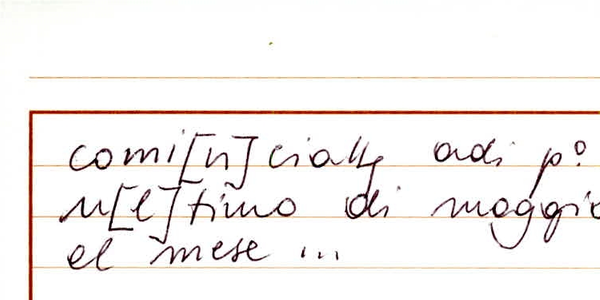 comi[n]cialla adi p°
u[l]timo di maggio
el mese ...